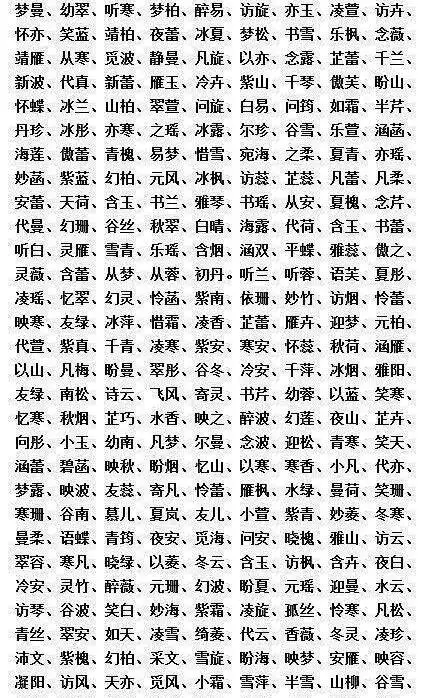 梦曼、幼翠、听寒、梦柏、醉易、访旋、亦玉、凌萱、访卉、
怀亦、笑蓝、靖柏、夜蕾、冰夏、梦松、书雪、乐枫、念薇、
靖雁、从寒、觅波、静曼、凡旋、以亦、念露、芷蕾、千兰、
新波、代真、新蕾、雁玉、冷卉、紫山、千琴、傲芙、盼山、
怀蝶、冰兰、山柏、翠萱、问旋、白易、问筠、如霜、半芹、
丹珍、冰彤、亦寒、之瑶、冰露、尔珍、谷雪、乐萱、涵菡、
海莲、傲蕾、青槐、易梦、惜雪、宛海、之柔、夏青、亦瑶、
妙菡、紫蓝、幻柏、元风、冰枫、访蕊、芷蕊、凡蕾、凡柔、
安蕾、天荷、含玉、书兰、雅琴、书瑶、从安、夏槐、念芹、
代曼、幻珊、谷丝、秋翠、白晴、海露、代荷、含玉、书蕾、
听白、灵雁、雪青、乐瑶、含烟、涵双、平蝶、雅蕊、傲之、
灵薇、含蕾、从梦、从蓉、初丹。听兰、听蓉、语芙、夏彤、
凌瑶、忆翠、幻灵、怜菡、紫南、依珊、妙竹、访烟、怜蕾、
映寒、友绿、冰萍、惜霜、凌香、芷蕾、雁卉、迎梦、元柏、
代萱、紫真、千青、凌寒、紫安、寒安、怀蕊、秋荷、涵雁、
以山、凡梅、盼曼、翠彤、谷冬、冷安、千萍、冰烟、雅阳、
友绿、南松、诗云、飞风、寄灵、书芹、幼蓉、以蓝、笑寒、
忆寒、秋烟、芷巧、水香、映之、醉波、幻莲、夜山、芷卉、
向彤、小玉、幼南、凡梦、尔曼、念波、迎松、青寒、笑天、
涵蕾、碧菡、映秋、盼烟、忆山、以寒、寒香、小凡、代亦、
梦露、映波、友蕊、寄凡、怜蕾、雁枫、水绿、曼荷、笑珊、
寒珊、谷南、慕儿、夏岚、友儿、小萱、紫青、妙菱、冬寒、
曼柔、语蝶、青筠、夜安、觅海、问安、晓槐、雅山、访云、
翠容、寒凡、晓绿、以菱、冬云、含玉、访枫、含卉、夜白、
冷安、灵竹、醉薇、元珊、幻波、盼夏、元瑶、迎曼、水云、
访琴、谷波、笑白、妙海、紫霜、凌旋、孤丝、怜寒、凡松、
青丝、翠安、如天、凌雪、绮菱、代云、香薇、冬灵、凌珍、
沛文、紫槐、幻柏、采文、雪旋、盼海、映梦、安雁、映容、
凝阳、访风、天亦、觅风、小霜、雪萍、半雪、山柳、谷雪、